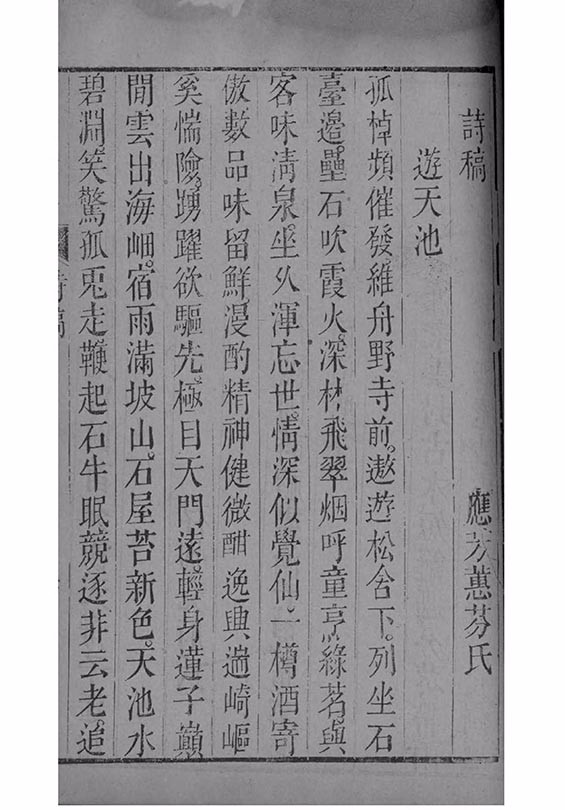 詩稿
應蕙芬氏
遊天池
孤棹頻催發。維舟野寺前。遨遊松舍下。列坐石
臺邊。壘石吹霞火。深林飛翠烟。呼童亨綠茗。與
客味清泉。坐久渾忘世。情深似覺仙。一樽酒寄
傲。數品味留鮮。漫酌精神健。微酣逸興遄。崎嶇
奚惴險。踴躍欲驅先。極目天門遠。輕身蓮子巔。
閒雲出海岫。宿雨滿坡山。石屋苔新色。天池水
碧淵。笑驚孤兎走。鞭起石牛眠。競逐非云老。追